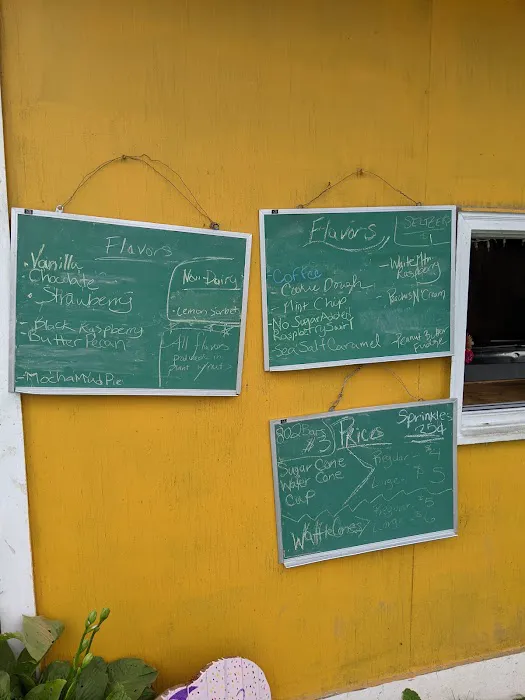 Flavors
• Vanilla
Chocolate
• Strawberry
- Black Raspberry
Butter Pecan
- Mocha Mud Pie
Non-Dairy
- Lemon Sorbet
- All Flavors
produced in
plant w/nuts
Flavors
SELTZER
- Coffee
- Cookie Dough
- Mint Chip
- No Sugar Added
Raspberry Swirl
Sea Salt Caramel
- White Mtn
Raspberry
- Cookies N' Cream
- Peanut Butter
Fudge
$3
Prices
Sprinkles
.25¢
Sugar Cone
Wafer Cone
Cup
Regular - $4
Large - $5
Waffle Cones
Regular - $5
Large - $6